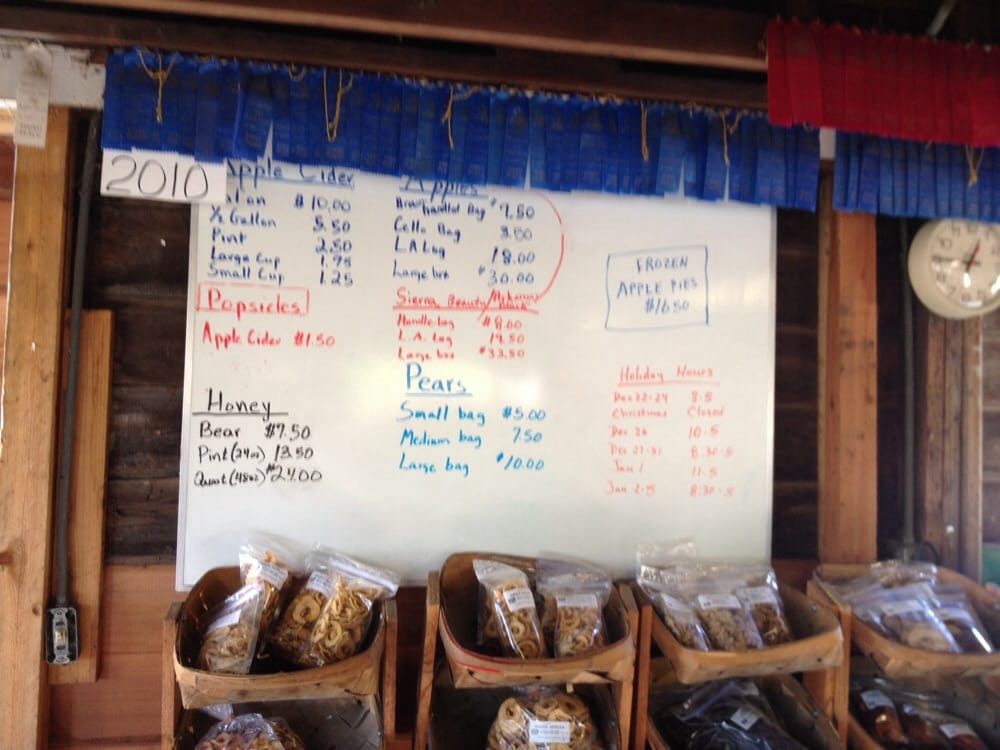 2010
Apple Cider
$10.00
½ Gallon 5.50
Pint 2.50
Large Cup 1.75
Small Cup 1.25
Popsicles
Apple Cider $1.50
Honey
Bear $7.50
Pint (24oz) 13.50
Quart (48oz) $24.00
Apples
handled Bag $7.50
Cello Bag 3.50
LA Lug 18.00
Large box $30.00
Sierra Beauty/
Handle bag $8.00
L.A. Lug 19.50
Large box $33.50
Pears
Small bag $5.00
Medium bag 7.50
Large bag $10.00
FROZEN
APPLE PIES
$16.50
Holiday Hours
Dec 22-24 8-5
Christmas Closed
Dec 26 10-5
Dec 27-31 8:30-5
Jan 1 11-5
Jan 2-5 8:30-5